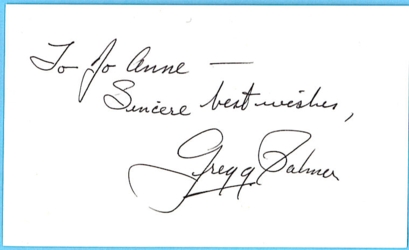 To Jo Anne —
Sincere best wishes,
Gregg Palmer